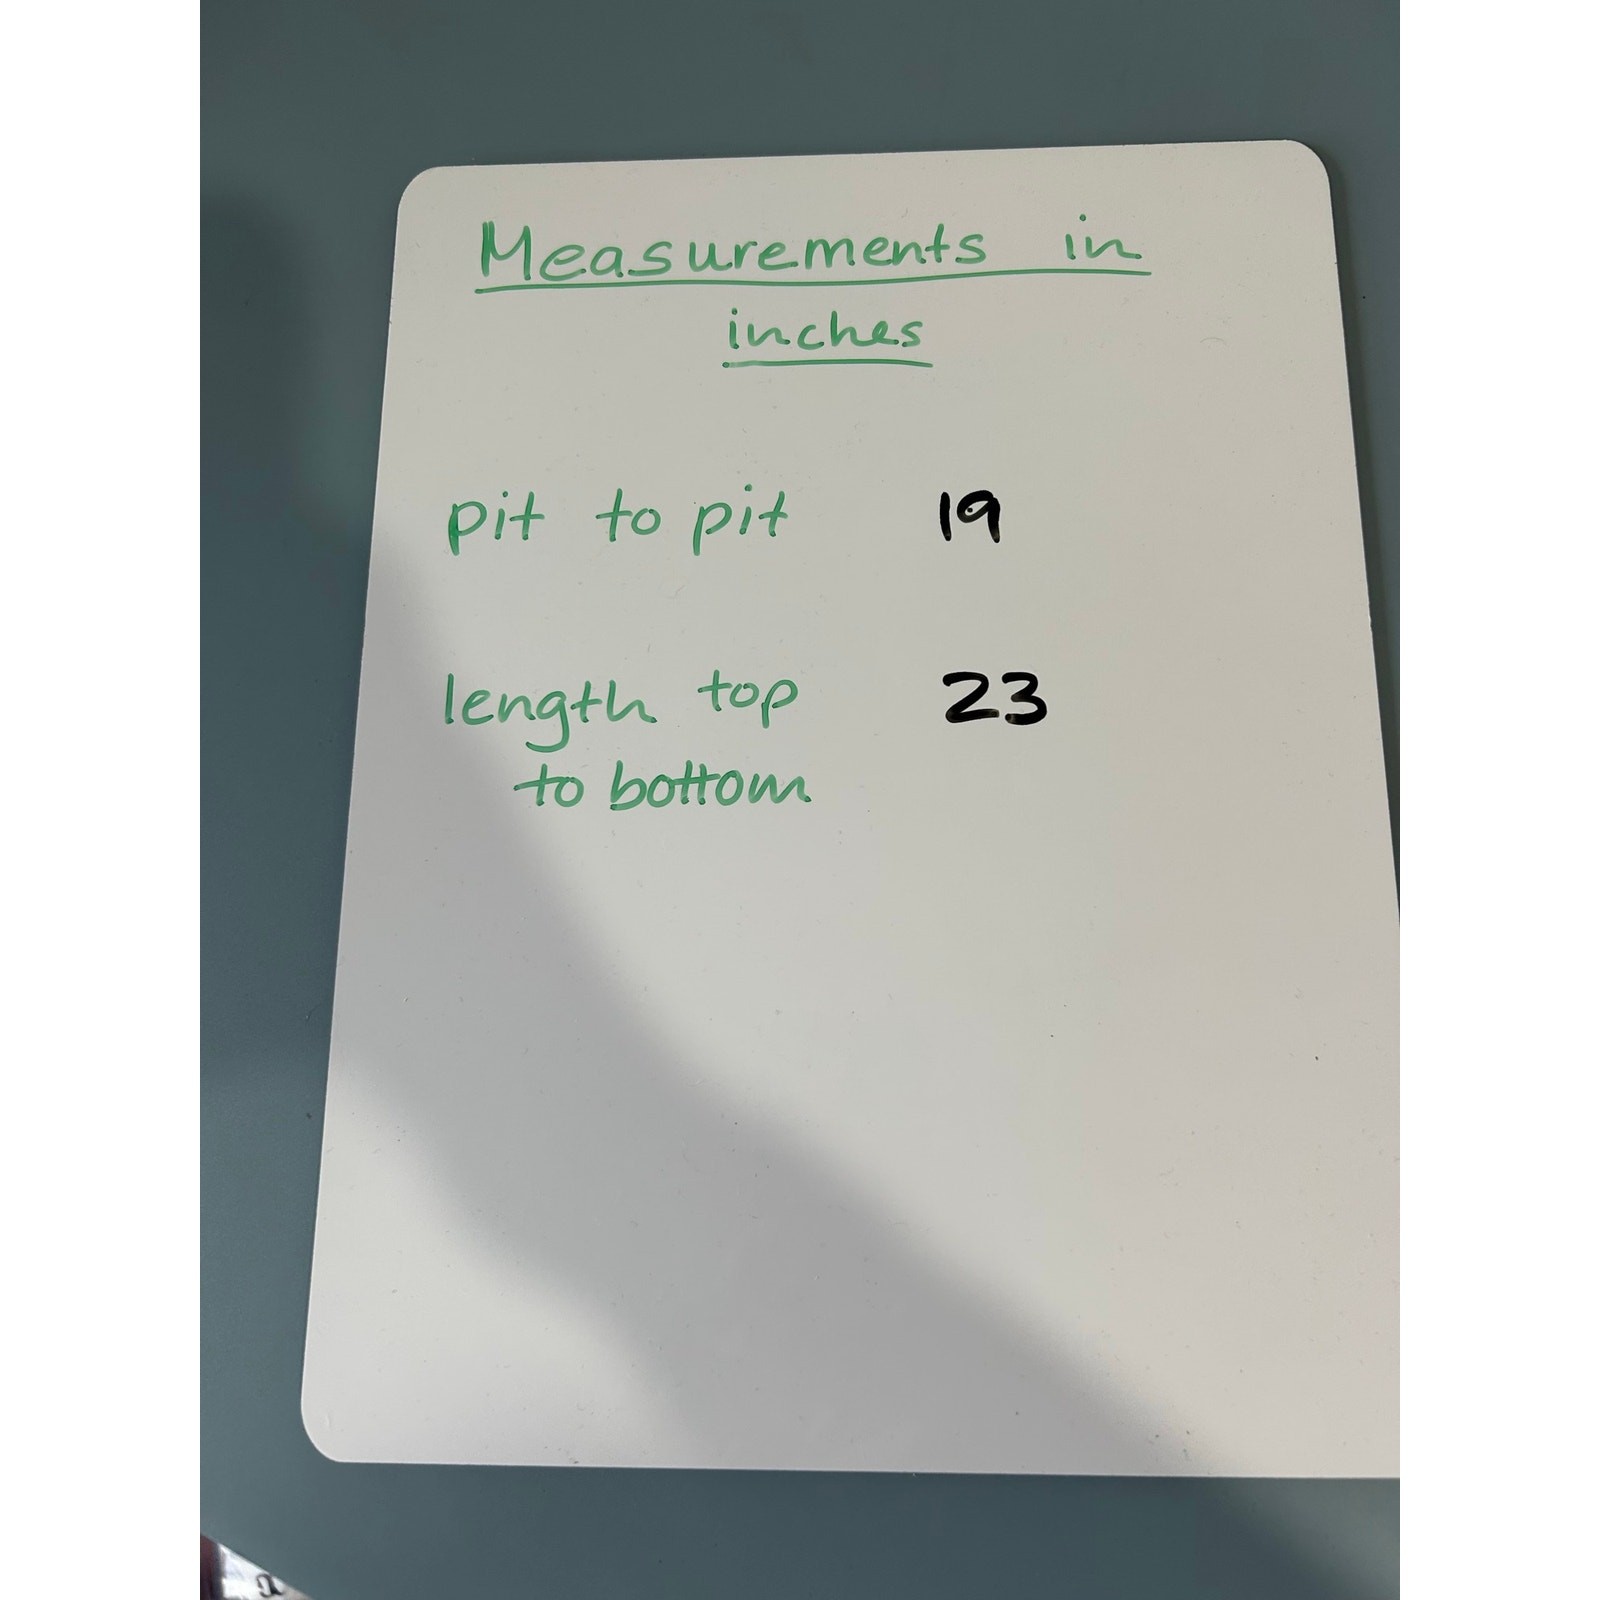 Measurements in
inches
pit to pit 19
length top 23
to bottom